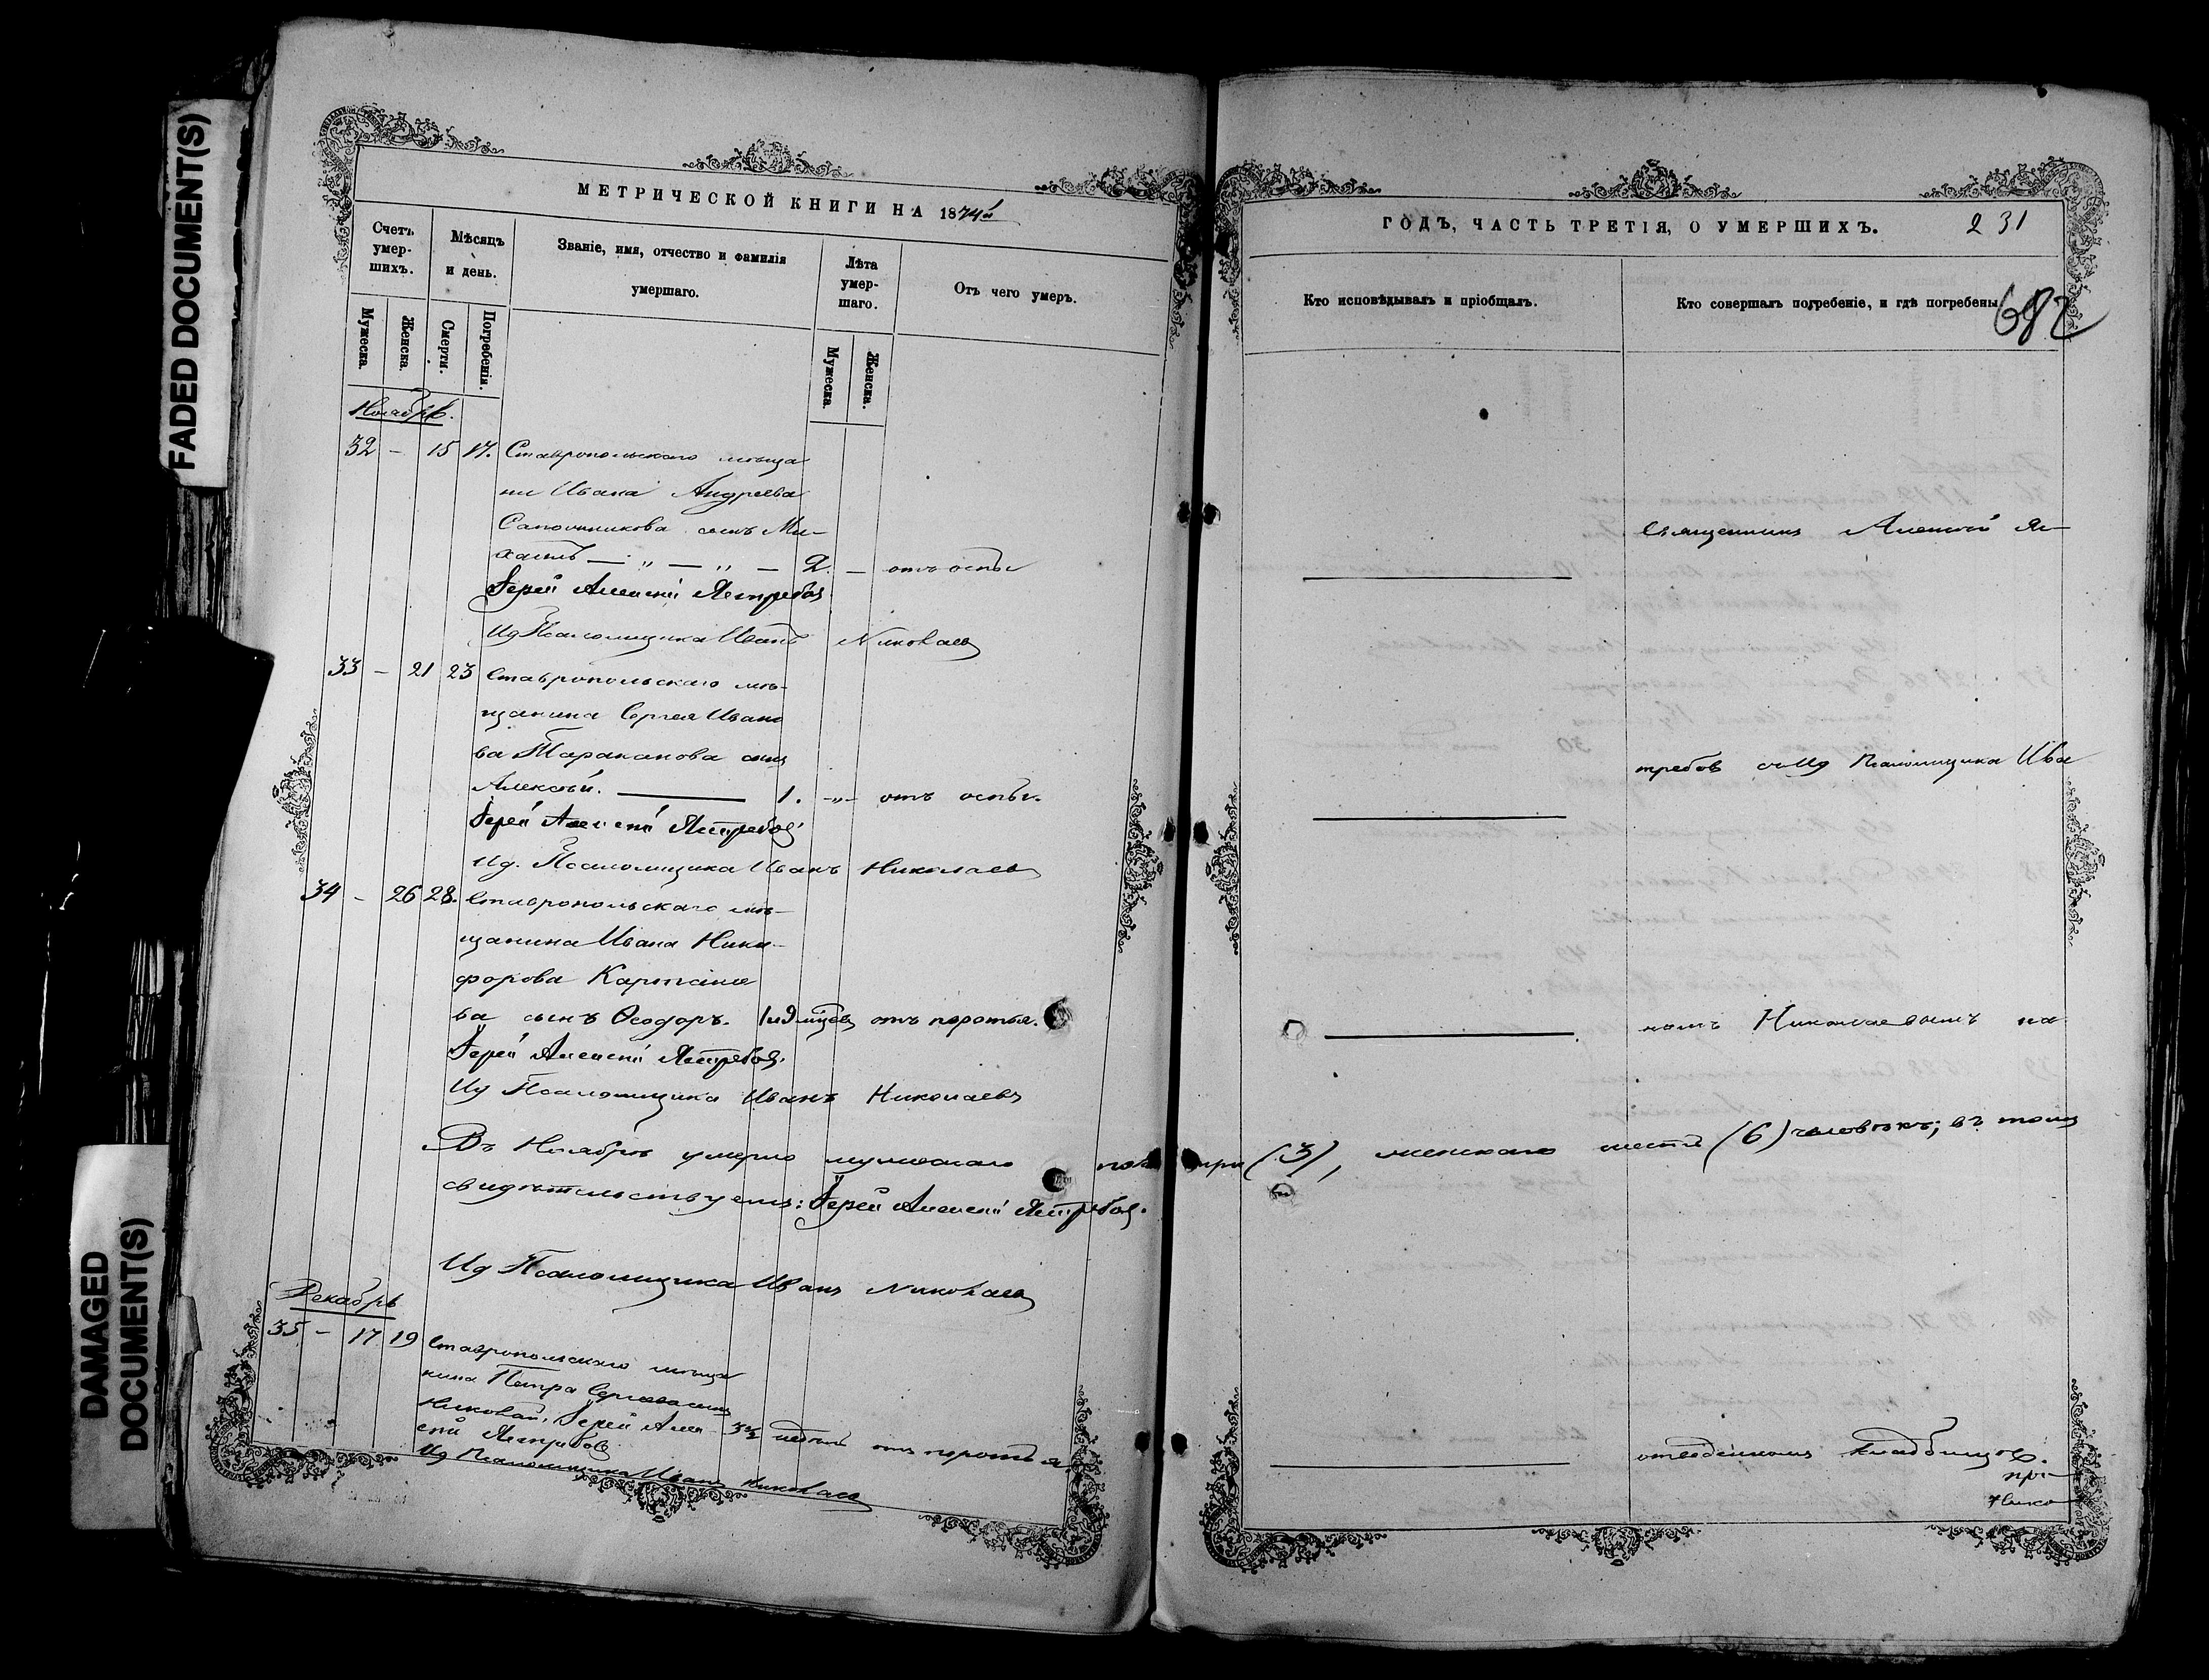 FADED DOCUMENT(S)
DAMAGED
DOCUMENT(S)
МЕТРИЧЕСКОЙ КНИГИ НА 1874й
Счетъ умер-шихъ.
Мѣсяцъ и день.
Званіе, имя, отчество и фамилія умершаго.
Лѣта умер-шаго.
Отъ чего умеръ.
Мужеска.
Женска.
Смерти.
Погребенія.
Мужеска.
Женска.
Ноябрь.
32 – 15 17. Ставропольскаго мѣща
нина Ивана Андреева
Сапожникова сынъ Ми-
хаилъ — „ — „ — 2. — отъ оспы
Іерей Алексій Ястребовъ
Ид Псаломщика Иванъ Николаевъ
33 – 21 23 Ставропольскаго мѣ-
щанина Сергея Ивано
ва Тараканова сынъ
Алексѣй. — 1. -„- отъ оспы.
Іерей Алексій Ястребовъ
Ид. Псаломщика Иванъ Николаевъ
34 – 26 28. Ставропольскаго мѣ-
щанина Ивана Ники-
форова
ва сынъ Ѳеодоръ. 1 и 9 мѣсяц отъ
Іерей Алексій Ястребовъ.
Ид Псаломщика Иванъ Николаевъ
Въ Ноябрѣ умерло мужескаго пола три (3), женскаго шесть (6) человѣкъ; въ томъ
свидѣтельствуемъ: Іерей Алексій Ястребовъ.
Ид Псаломщика Иванъ Николаевъ
Декабрь
35 – 17 19 Ставропольскаго мѣща
нина Петра Сергѣева сынъ
Николай. Іерей Алек- 3 недѣль отъ
сій Ястребовъ
Ид Псаломщика Иванъ Николаевъ
ГОДЪ, ЧАСТЬ ТРЕТІЯ, О УМЕРШИХЪ. 231
Кто исповѣдывалъ и пріобщалъ.
Кто совершалъ погребеніе, и гдѣ погребены
682
Священникъ Алексій Яс-
требовъ съ Ид Псаломщика Ива
номъ Николаевымъ на
отведенномъ кладбищѣ.